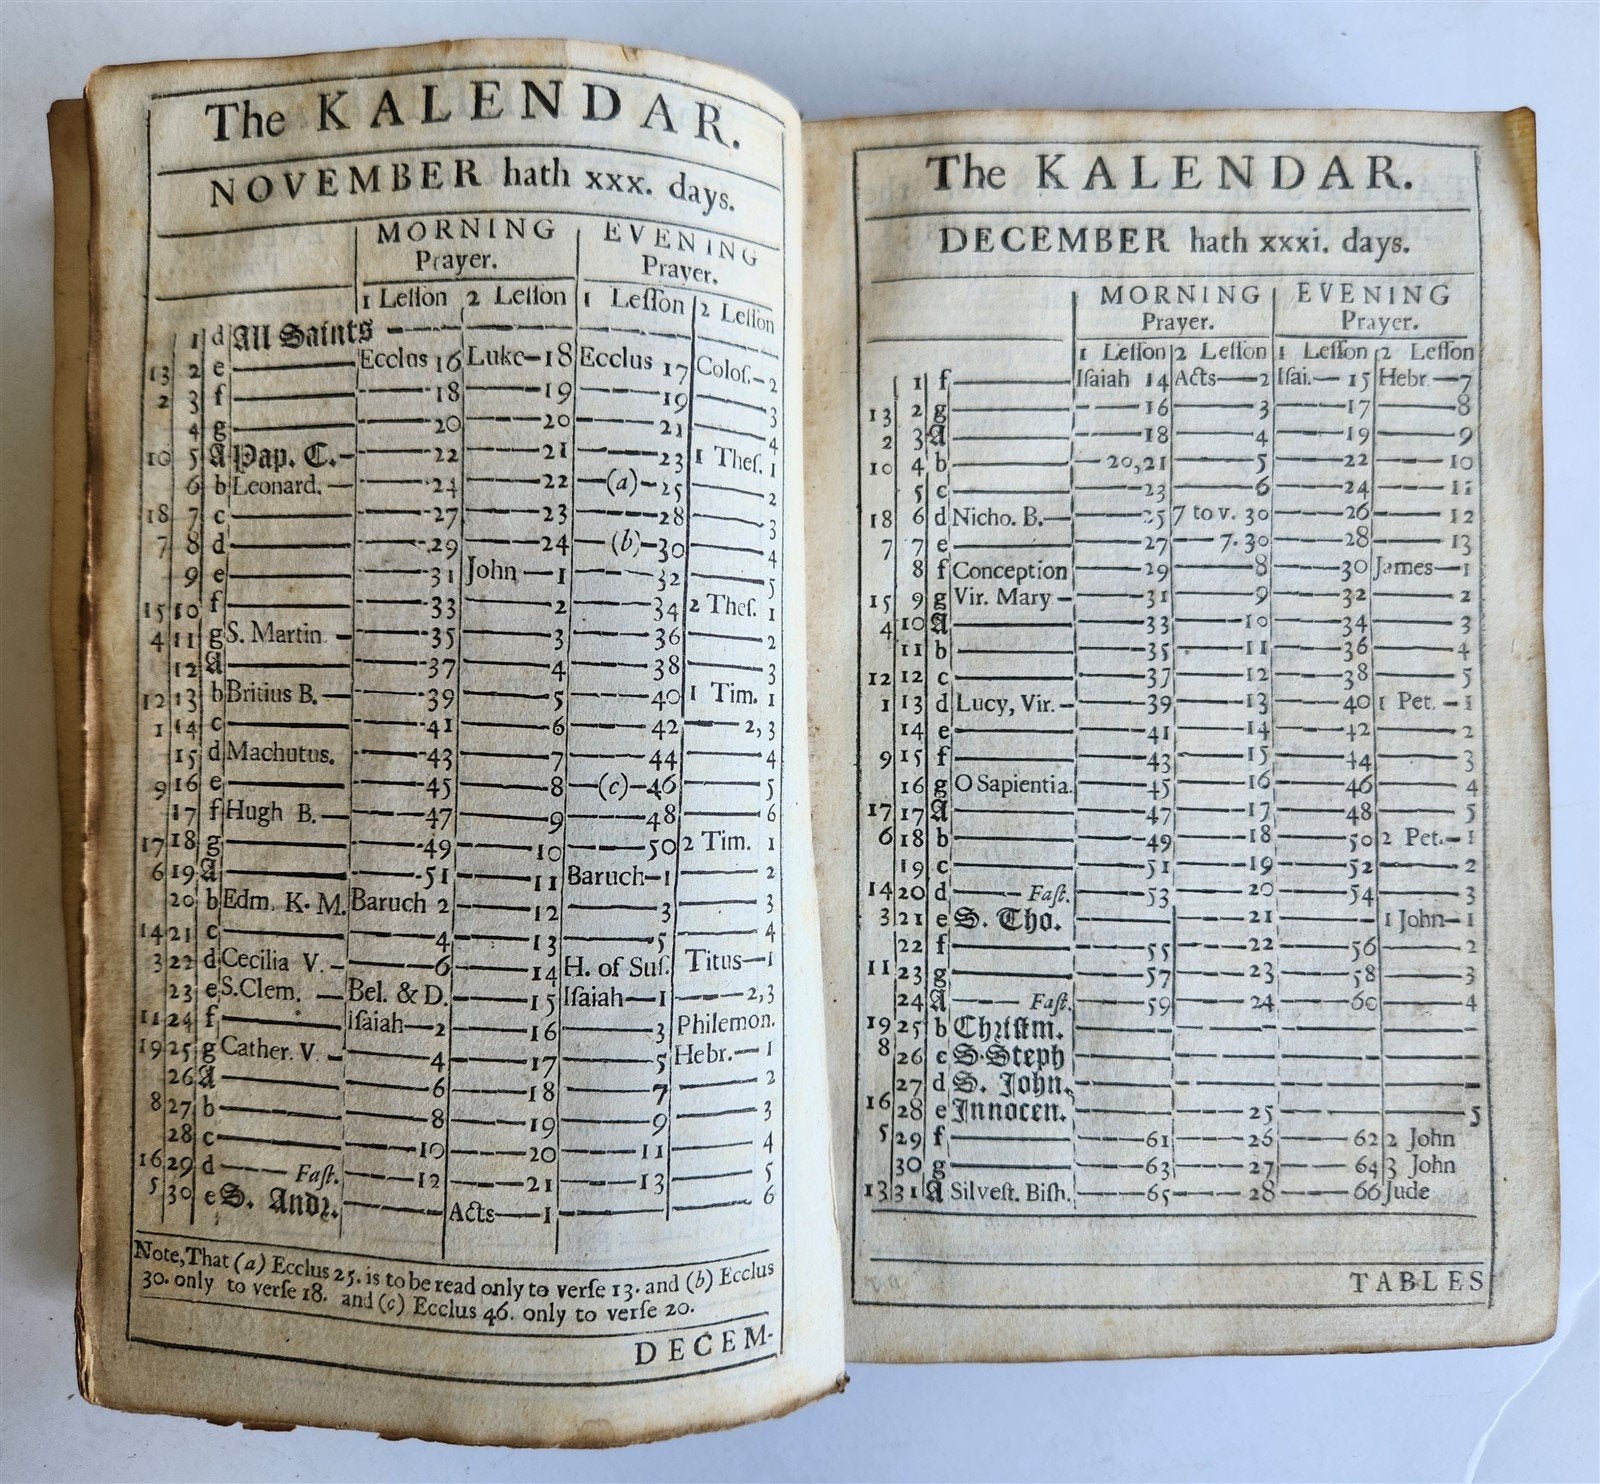 The KALENDAR.
NOVEMBER hath xxx. days.
MORNING Prayer. EVENING Prayer.
1 Leſſon 2 Leſſon 1 Leſſon 2 Leſſon
1 d All Saints
13 2 e Ecclus 16 Luke 18 Ecclus 17 Coloſ. 2
2 3 f 18 19 19 3
4 g 20 20 21 4
10 5 A Pap. C. 22 21 23 1 Theſ. 1
6 b Leonard. 24 22 (a) 25 2
18 7 c 27 23 28 3
7 8 d 29 24 (b) 30 4
9 e 31 John 1 32 5
15 10 f 33 2 34 2 Theſ. 1
4 11 g S. Martin 35 3 36 2
12 A 37 4 38 3
12 13 b Britius B. 39 5 40 1 Tim. 1
1 14 c 41 6 42 2,3
15 d Machutus. 43 7 44 4
9 16 e 45 8 (c) 46 5
17 f Hugh B. 47 9 48 6
17 18 g 49 10 50 2 Tim. 1
6 19 A 51 11 Baruch 1 2
20 b Edm. K. M. Baruch 2 12 3 3
14 21 c 4 13 5 4
3 22 d Cecilia V. 6 14 H. of Suſ. Titus 1
23 e S.Clem. Bel. & D. 15 Iſaiah 1 2,3
11 24 f Iſaiah 2 16 3 Philemon.
19 25 g Cather. V. 4 17 5 Hebr. 1
26 A 6 18 7 2
8 27 b 8 19 9 3
28 c 10 20 11 4
16 29 d Faſt. 12 21 13 5
5 30 e S. Andr. Acts 1 6
Note, That (a) Ecclus 25. is to be read only to verſe 13. and (b) Ecclus
30. only to verſe 18. and (c) Ecclus 46. only to verſe 20.
DECEM-
The KALENDAR.
DECEMBER hath xxxi. days.
MORNING Prayer. EVENING Prayer.
1 Leſſon 2 Leſſon 1 Leſſon 2 Leſſon
1 f Iſaiah 14 Acts 2 Iſai. 15 Hebr. 7
13 2 g 16 3 17 8
2 3 A 18 4 19 9
10 4 b 20,21 5 22 10
5 c 23 6 24 11
18 6 d Nicho. B. 25 7 to v. 30 26 12
7 7 e 27 7. 30 28 13
8 f Conception 29 8 30 James 1
15 9 g Vir. Mary 31 9 32 2
4 10 A 33 10 34 3
11 b 35 11 36 4
12 12 c 37 12 38 5
1 13 d Lucy, Vir. 39 13 40 1 Pet. 1
14 e 41 14 42 2
9 15 f 43 15 44 3
16 g O Sapientia. 45 16 46 4
17 17 A 47 17 48 5
6 18 b 49 18 50 2 Pet. 1
19 c 51 19 52 2
14 20 d Faſt. 53 20 54 3
3 21 e S. Tho. 21 1 John 1
22 f 55 22 56 2
11 23 g 57 23 58 3
24 A Faſt. 59 24 60 4
19 25 b Chriſtm.
8 26 c S. Steph
27 d S. John.
16 28 e Innocen. 25 5
5 29 f 61 26 62 2 John
30 g 63 27 64 3 John
13 31 A Silveſt. Biſh. 65 28 66 Jude
TABLES